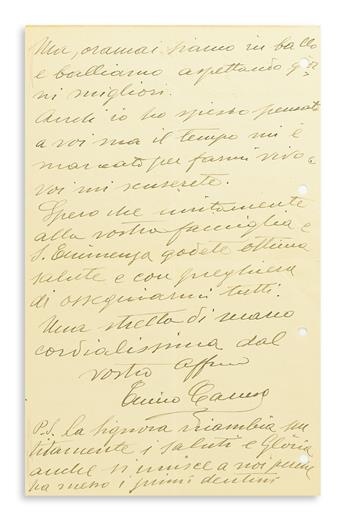 Ma, oramai siamo in ballo
e balliamo aspettando gior
ni migliori.
Anch'io ho spesso pensato
a voi ma il tempo mi è
mancato per farmi vivo e
voi mi scuserete.
Spero che unitamente
alla vostra famiglia e
S. Eminenza godete ottima
salute e con preghiera
di ossequiarmi tutti.
Una stretta di mano
cordialissima dal
vostro affmo
Enrico Caruso
P.S. la signora ricambia
titamente i saluti e Gloria
anche si unisce a noi
ha messo i primi dentini